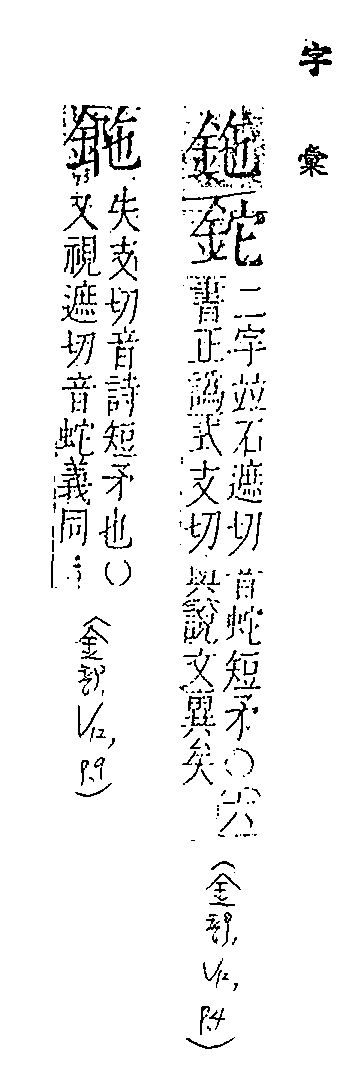 字彙
鉇鉈
二字並石遮切音蛇短矛○六
書正譌式支切與說文異矣
(金部, 1/12, P.4)
鍦
失支切音詩短矛也○
又視遮切音蛇義同
(金部, 1/12, P.9)